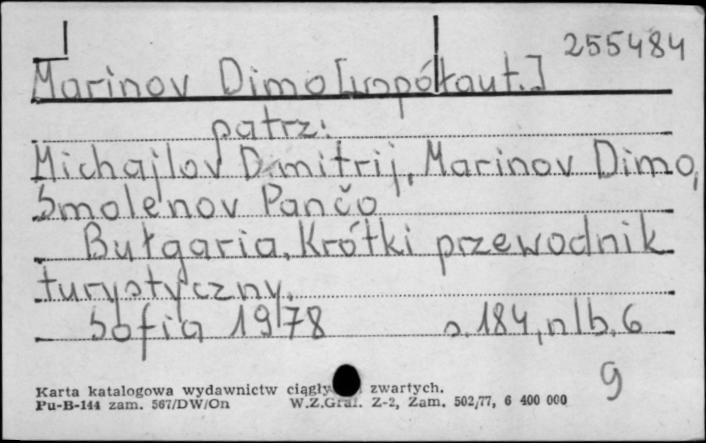 255484
Marinov Dimo [współaut.]
patrz:
Michajlov Dimitrij, Marinov Dimo,
Smolenov Pančo
Bułgaria. Krótki przewodnik
turystyczny.
Sofia 1978 s. 184, nlb. 6
9
Karta katalogowa wydawnictw zwartych.
Pu-B-144 zam. 567/DW/On W.Z.Graf. Z-2, Zam. 502/77, 6 400 000